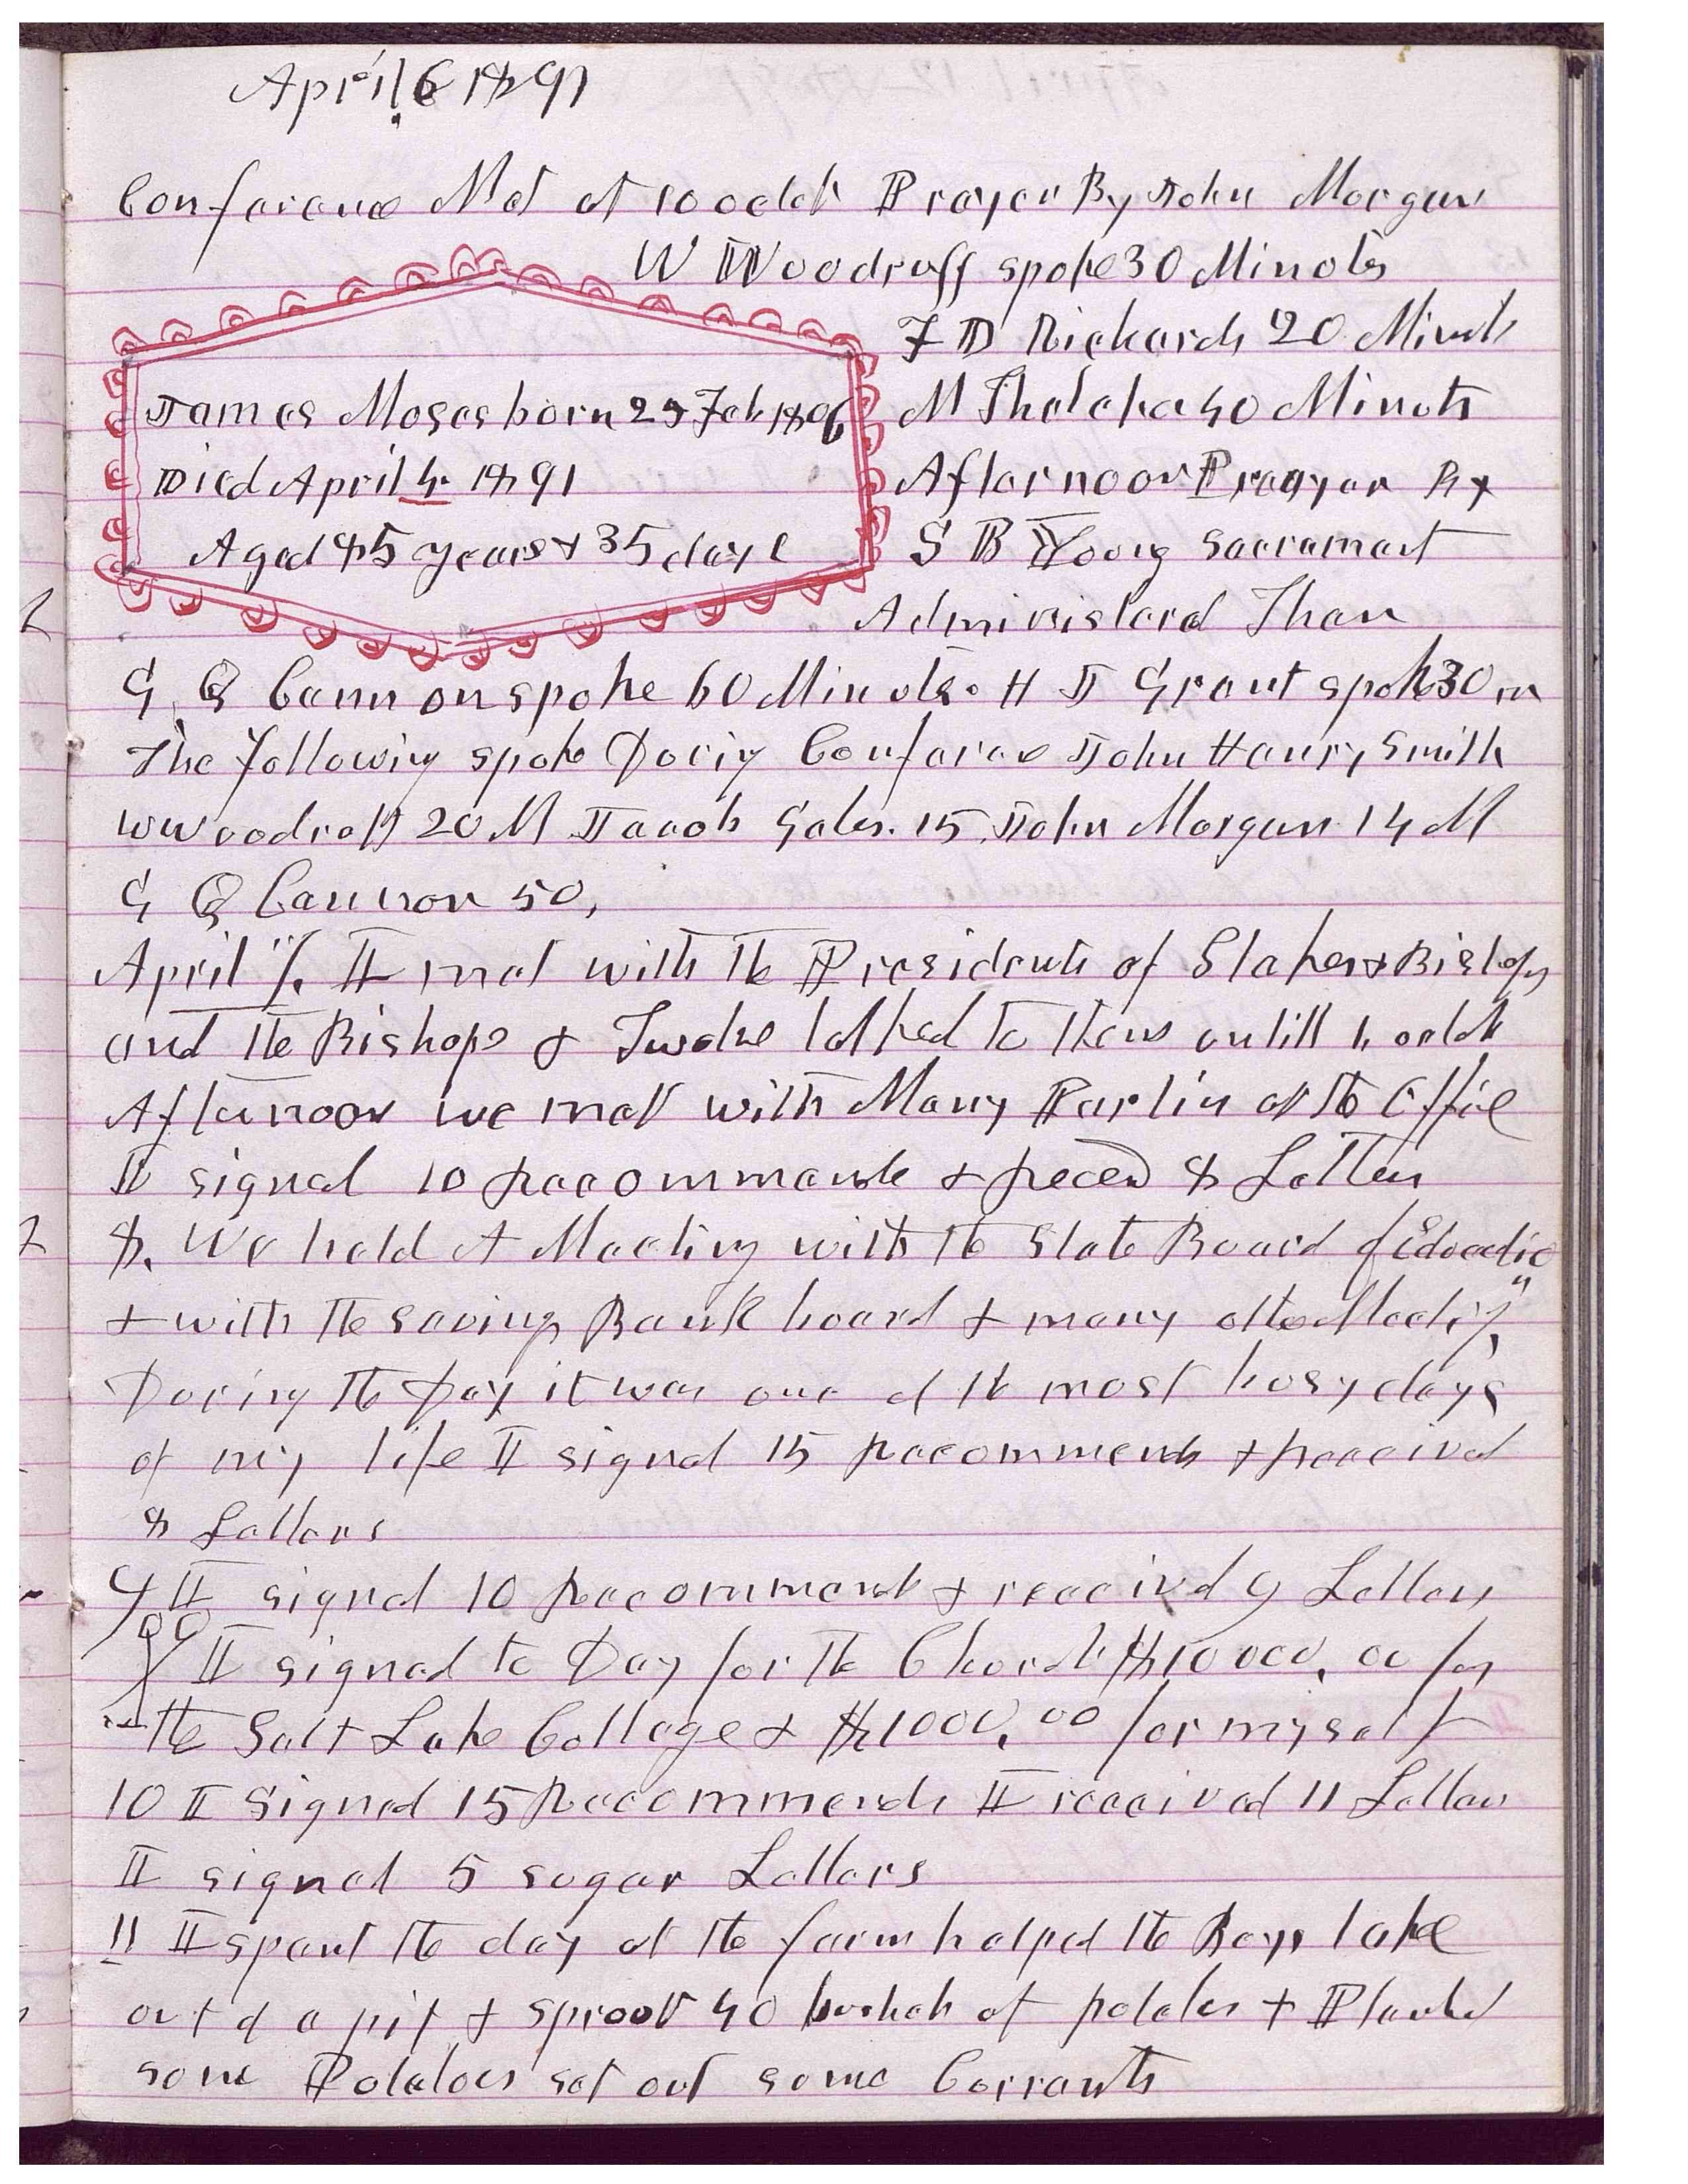 April 6 1891
Conference Met at 10 oclok Prayer By John Morgan
W Woodruff spoke 30 Minots
F D Richards 20 Minuts
M Thatcher 40 Minuts
James Moses born 29 Feb 1806
Died April 4. 1891
Aged 85 years & 35 days
Afternoon Prayer By
S B Young Sacrament
Administerd Then
G Q Cannon spoke 60 Minutes. H J Grant spoke 30 m
The following spoke During Conference John Henry Smith
W Woodruff 20 M Jacob Gates. 15. John Morgan 14 M
G Q Cannon 50,
April 7. I met with the Presidents of Stakes & Bishops
and the Bishops & Twelve talked to them untill 1 oclok
Afternoon we met with Many Parties at the Office
I signed 10 Recommends & Receivd 8 Letters
8. We held A Meeting with the State Board of Education
& with the savings Bank board & many other Meetings
During the Day it was one of the most busy days
of my life I signed 15 Recommends & Received
8 Letters
9 I signed 10 Recommends & received 9 Letters
I signed to Day for the Church $10000.00 for
the Salt Lake College & $1000.00 for myself
10 I signed 15 Recommends I received 11 Letters
I signed 5 sugar Letters
11 I spent the day at the farm helped the Boys take
out of a pit & sprout 40 bushels of potatoes & Planted
some Potatoes set out some Currants